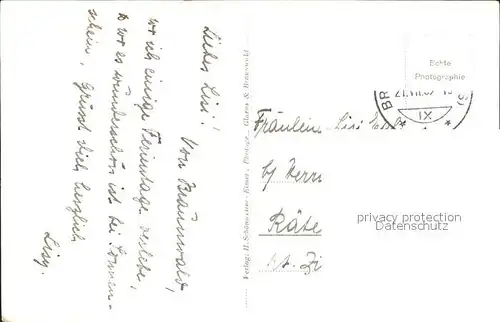 Liebes Lisi!
Von Braunwald,
wo ich einige Ferientage verlebe,
& wo es wunderschön ist bei Sonnen-
schein, grüsst dich herzlich
Lisy.
Verlag H. Schönwetter-Elmer, Photogr., Glarus & Braunwald
Echte
Photographie
BR
XI
Fräulein Lisi
b/ Herrn
Räte
privacy protection
Datenschutz